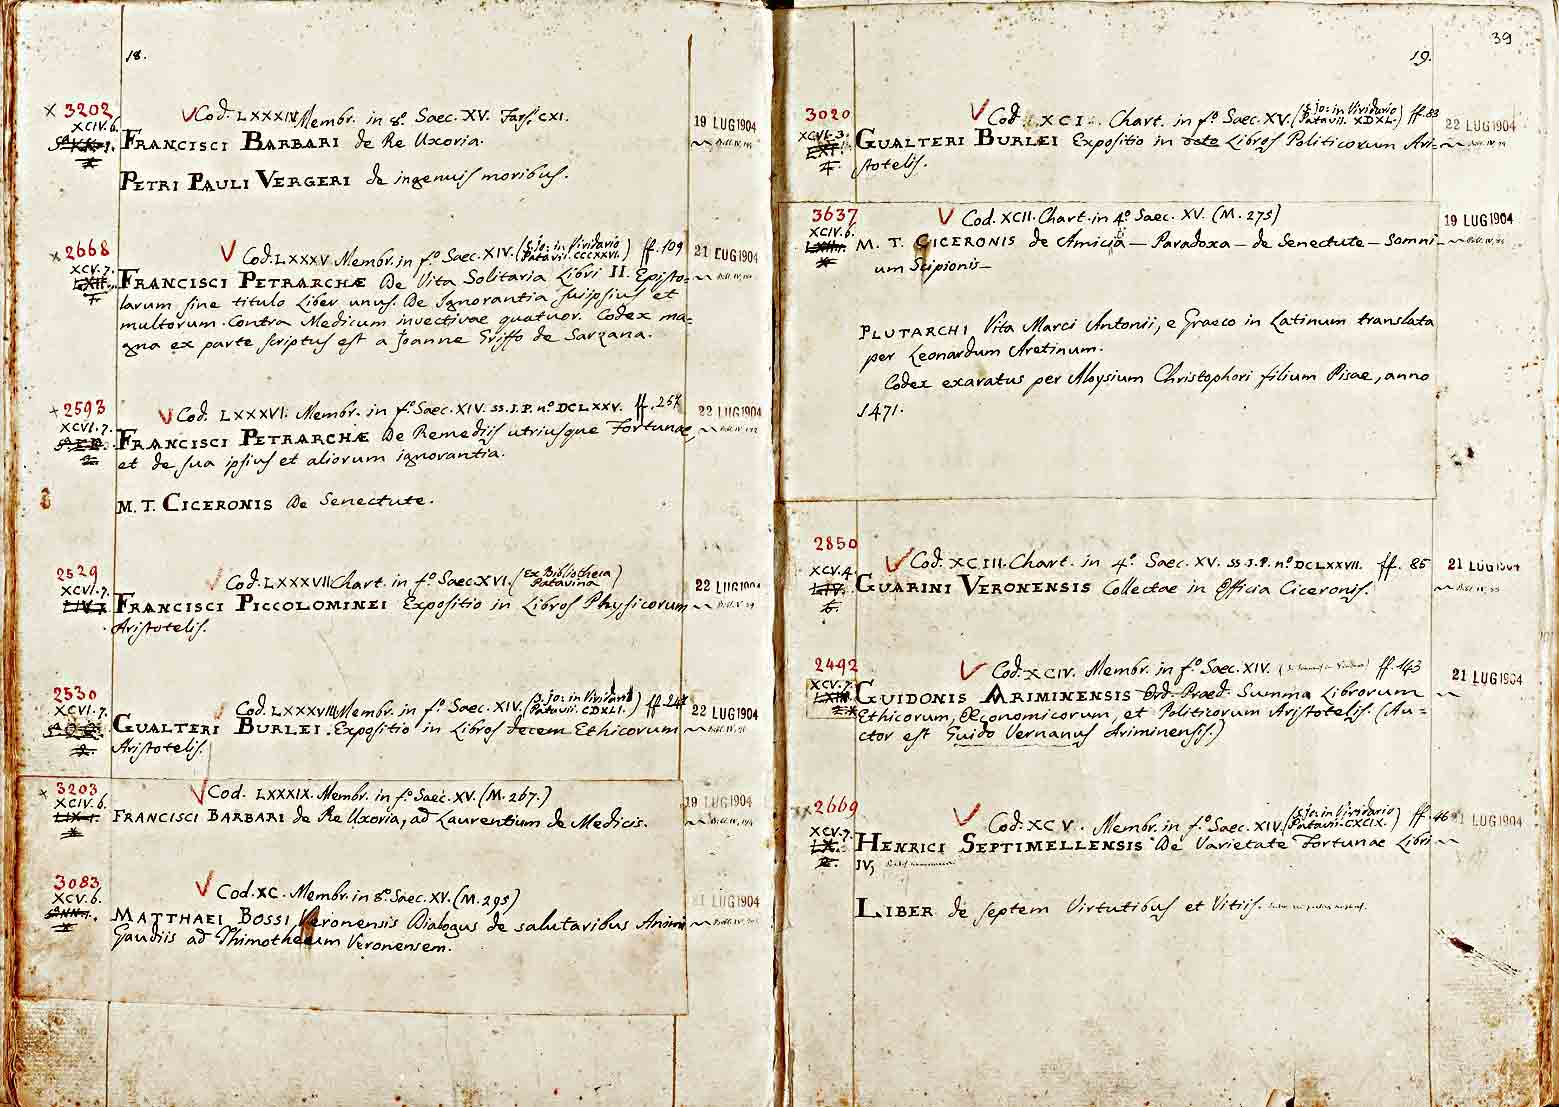 18.
× 3202
XCIV. 6.
Cod. LXXXIV Membr. in 8º. Saec. XV. Fars. CXI.
19 LUG 1904
FRANCISCI BARBARI de Re Uxoria.
PETRI PAULI VERGERI de ingenuis moribus.
× 2668
XCV. 7.
Cod. LXXXV Membr. in fº. Saec. XIV. (S. Jo: in Viridario Patavii. CCCXXVI.) ff. 109
21 LUG 1904
FRANCISCI PETRARCHÆ De Vita Solitaria Libri II. Episto=
larum sine titulo Liber unus. De Ignorantia suiipsius et
multorum. Contra Medicum invectivae quatuor. Codex ma=
gna ex parte scriptus est a Joanne Griffo de Sarzana.
× 2593
XCVI. 7.
Cod. LXXXVI. Membr. in fº. Saec. XIV. ss. J. P. nº. DCLXXV. ff. 257
22 LUG 1904
FRANCISCI PETRARCHÆ De Remediis utriusque Fortunae,
et de sua ipsius et aliorum ignorantia.
M. T. CICERONIS De Senectute.
2529
XCVI. 7.
Cod. LXXXVII Chart. in fº. Saec. XVI. (Ex Bibliotheca Patavina)
22 LUG 1904
FRANCISCI PICCOLOMINEI Expositio in Libros Physicorum
Aristotelis.
2530
XCVI. 7.
Cod. LXXXVIII Membr. in fº. Saec. XIV. (S. Jo: in Viridario Patavii. CDXLI.) ff. 24
22 LUG 1904
GUALTERI BURLEI. Expositio in Libros decem Ethicorum
Aristotelis.
× 3203
XCIV. 6.
Cod. LXXXIX. Membr. in fº. Saec. XV. (M. 267.)
19 LUG 1904
FRANCISCI BARBARI de Re Uxoria, ad Laurentium de Medicis.
3083
XCV. 6.
Cod. XC. Membr. in 8º. Saec. XV. (M. 295)
21 LUG 1904
MATTHAEI BOSSI Veronensis Dialogus de salutaribus Animi
Gaudiis ad Thimotheum Veronensem.
39
19.
3020
XCVI. 3.
Cod. XCI. Chart. in fº. Saec. XV. (S. Jo: in Viridario Patavii. XDXL.) ff. 83
22 LUG 1904
GUALTERI BURLEI Expositio in octo Libros Politicorum Ari=
stotelis.
3637
XCIV. 6.
Cod. XCII. Chart. in 4º. Saec. XV. (M. 275)
19 LUG 1904
M. T. CICERONIS de Amicitia — Paradoxa — de Senectute — Somni
um Scipionis —
PLUTARCHI Vita Marci Antonii, e Graeco in Latinum translata
per Leonardum Aretinum.
Codex exaratus per Aloysium Christophori filium Pisae, anno
1471.
2850
XCV. 4.
Cod. XCIII. Chart. in 4º. Saec. XV. ss. J. P. nº. DCLXXVII. ff. 85
21 LUG 1904
GUARINI VERONENSIS Collectae in Officia Ciceronis.
2492
XCV. 7.
Cod. XCIV. Membr. in fº. Saec. XIV. ff. 143
21 LUG 1904
GUIDONIS ARIMINENSIS Ord. Praed. Summa Librorum
Ethicorum, Œconomicorum, et Politicorum Aristotelis. (Au=
ctor est Guido Vernanus Ariminensis.)
× 2669
XCV. 7.
Cod. XCV. Membr. in fº. Saec. XIV. (S. Jo: in Viridario Patavii. CXCIX.) ff. 46
21 LUG 1904
HENRICI SEPTIMELLENSIS De Varietate Fortunae Libri
IV,
LIBER de septem Virtutibus et Vitiis.